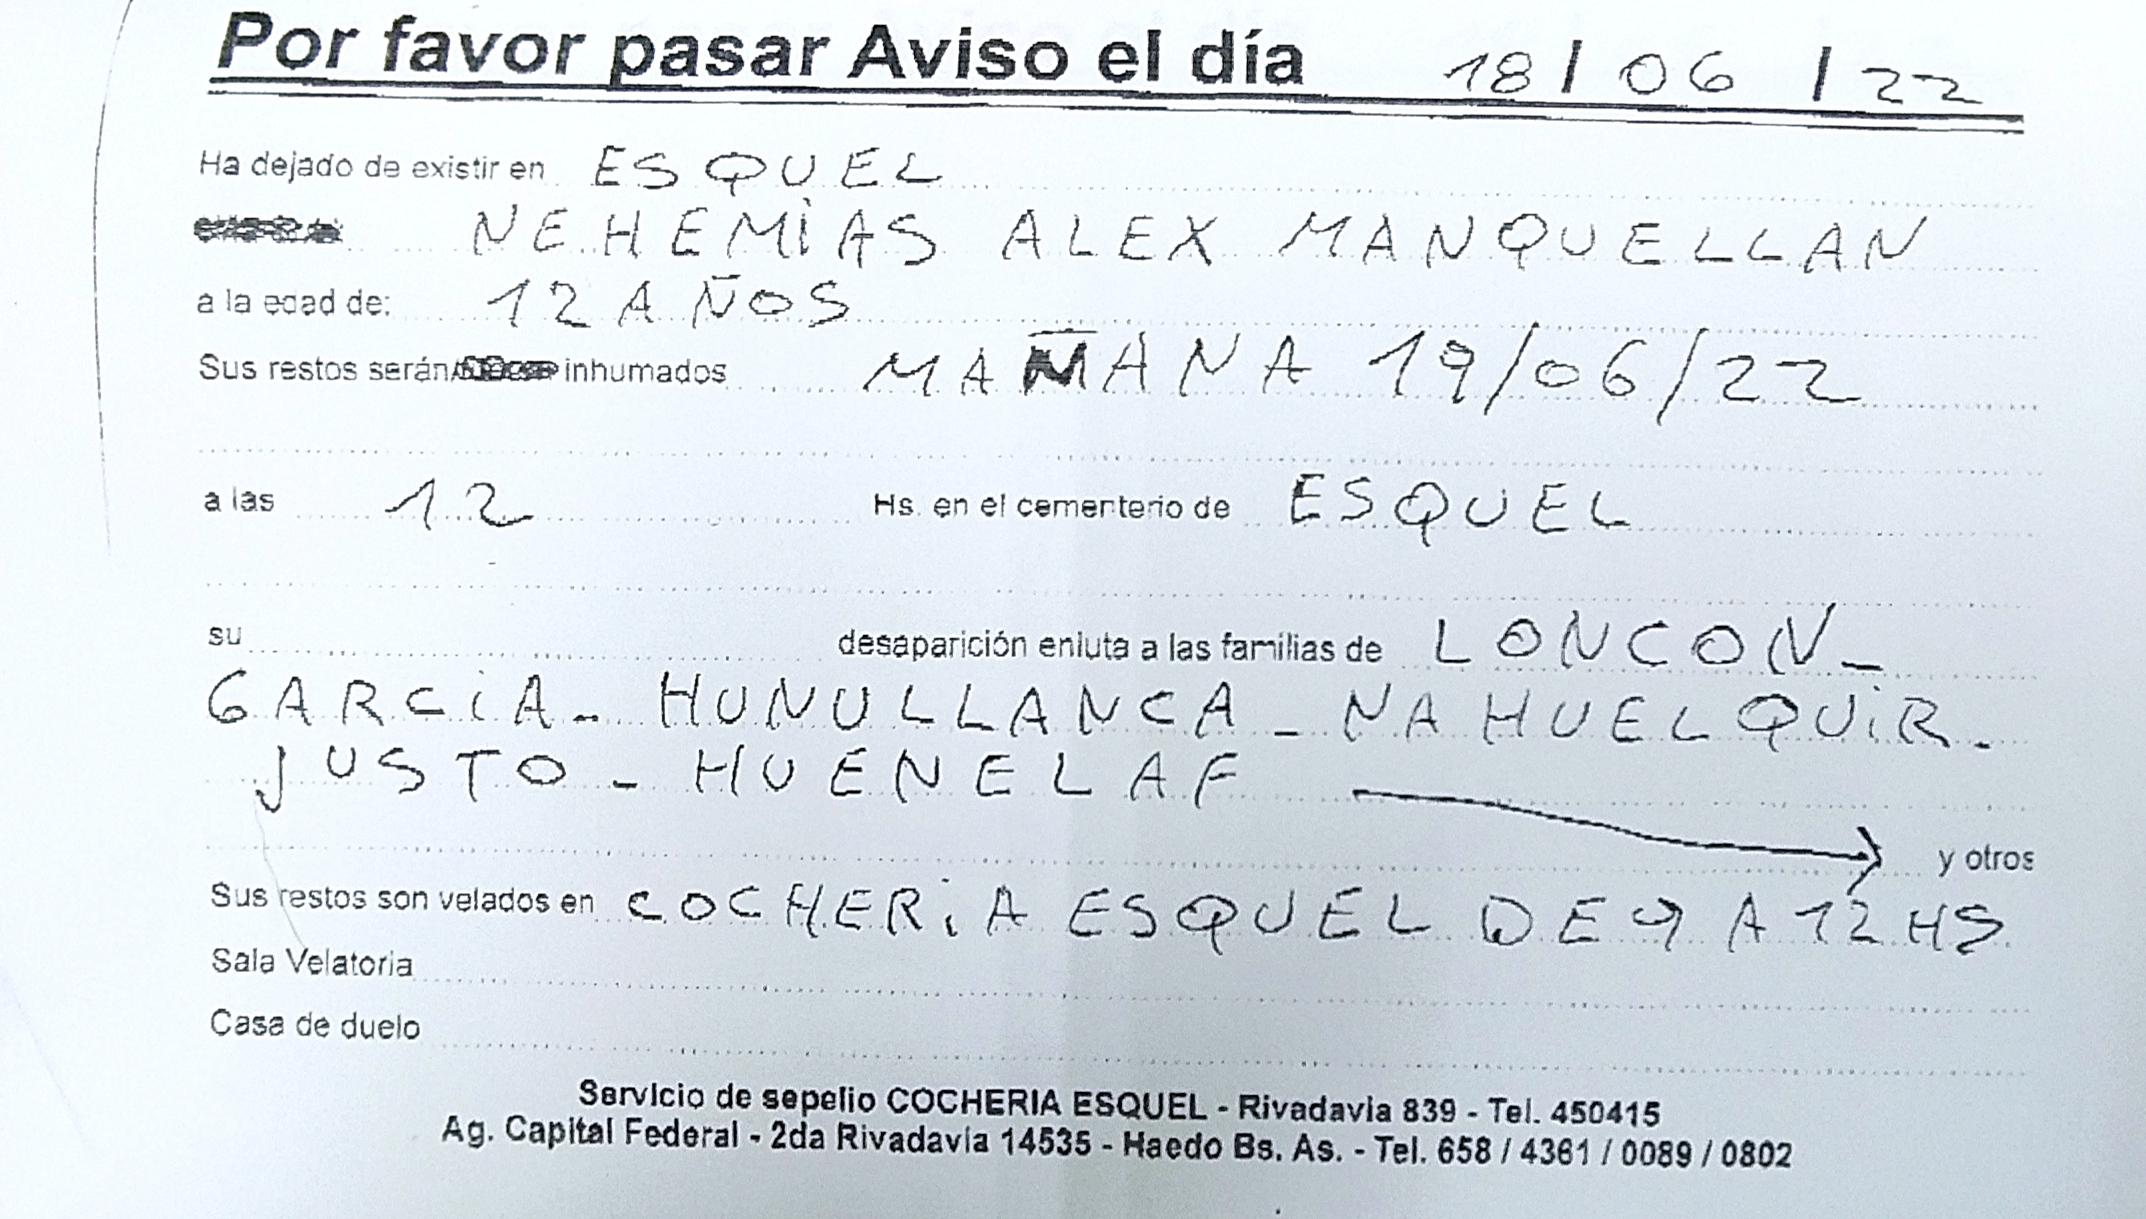 Por favor pasar Aviso el día 18 / 06 / 22
Ha dejado de existir en ESQUEL
NEHEMiAS ALEX MANQUELLAN
a la edad de: 12 AÑOS
Sus restos serán inhumados MAÑANA 19/06/22
a las 12 Hs. en el cementerio de ESQUEL
su desaparición enluta a las familias de LONCON -
GARCiA - HUNULLANCA - NAHUELQUiR -
JUSTO - HUENELAF
y otros
Sus restos son velados en COCHERiA ESQUEL DE 9 A 12 HS
Sala Velatoria
Casa de duelo
Servicio de sepelio COCHERIA ESQUEL - Rivadavia 839 - Tel. 450415
Ag. Capital Federal - 2da Rivadavia 14535 - Haedo Bs. As. - Tel. 658 / 4361 / 0089 / 0802